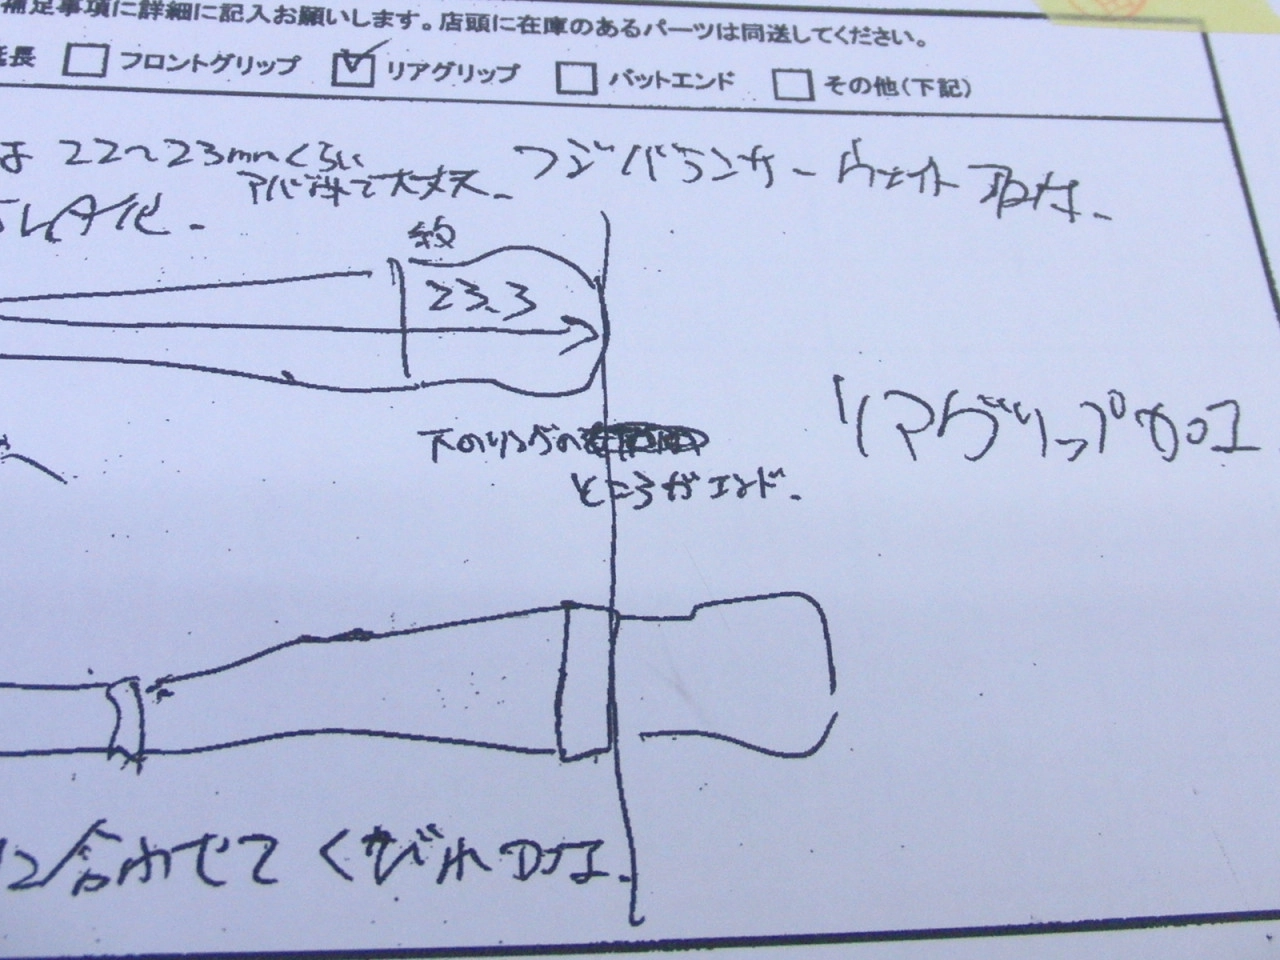 補足事項に詳細に記入お願いします。店頭に在庫のあるパーツは同送してください。
延長 フロントグリップ リアグリップ バットエンド その他(下記)
は 22〜23mmくらい フジバランサーウェイト取付.
アバウトで大丈夫.
約
23.3
下のリングの
ところがエンド.
リアグリップ加工
に合わせてくびれ